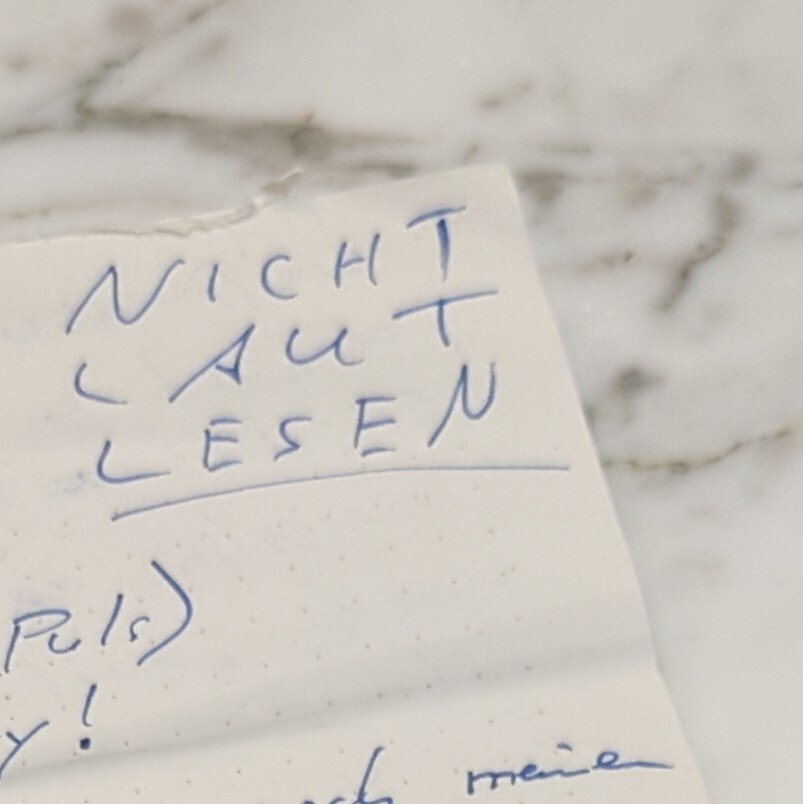 NICHT
LAUT
LESEN
Puls)
y!
meinen